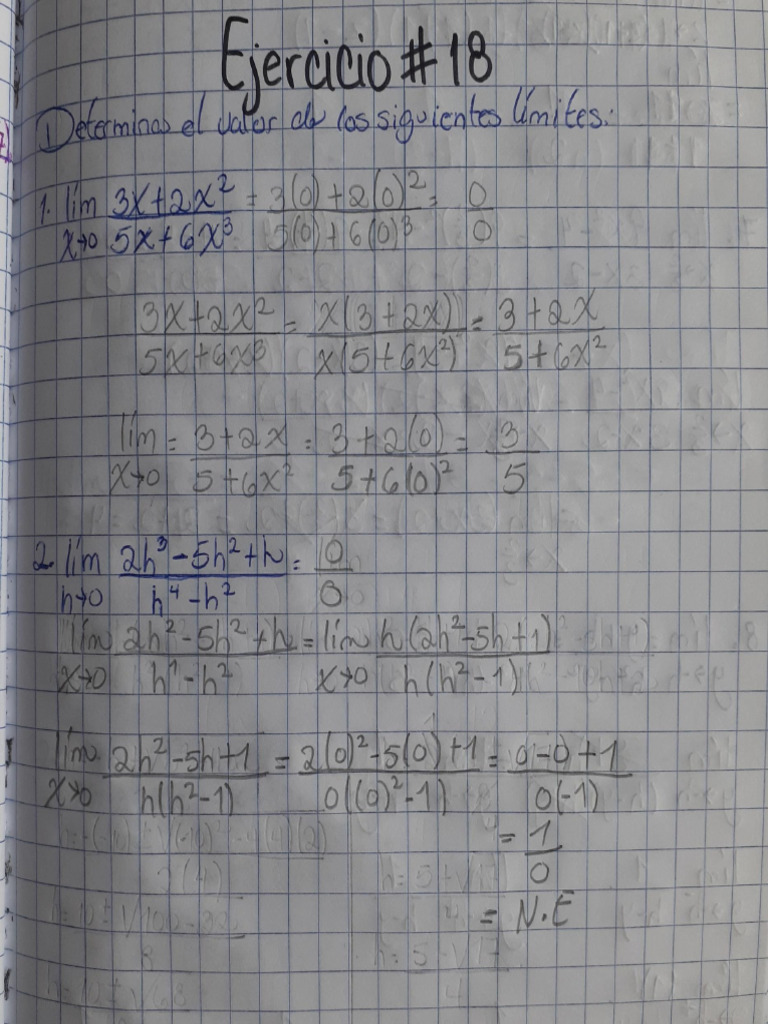 Ejercicio #18
① Determinas el valor de los siguientes límites:
1. lím x→0 (3x+2x²)/(5x+6x³) = (3(0)+2(0)²)/(5(0)+6(0)³) = 0/0
(3x+2x²)/(5x+6x³) = x(3+2x)/x(5+6x²) = (3+2x)/(5+6x²)
lím x→0 = (3+2x)/(5+6x²) = (3+2(0))/(5+6(0)²) = 3/5
2. lím h→0 (2h³-5h²+h)/(h⁴-h²) = 0/0
lím x→0 (2h²-5h²+h)/(h⁴-h²) = lím x→0 h(2h²-5h+1)/h(h²-1)
lím x→0 (2h²-5h+1)/h(h²-1) = (2(0)²-5(0)+1)/0((0)²-1) = (0-0+1)/0(-1)
= 1/0
= N.E